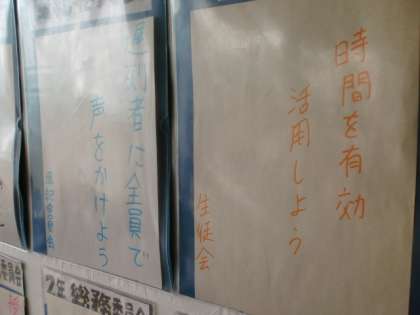 時間を有効
活用しよう
生徒会
遅刻者に全員で
声をかけよう
風紀委員会
2年 総務委員会
委員会